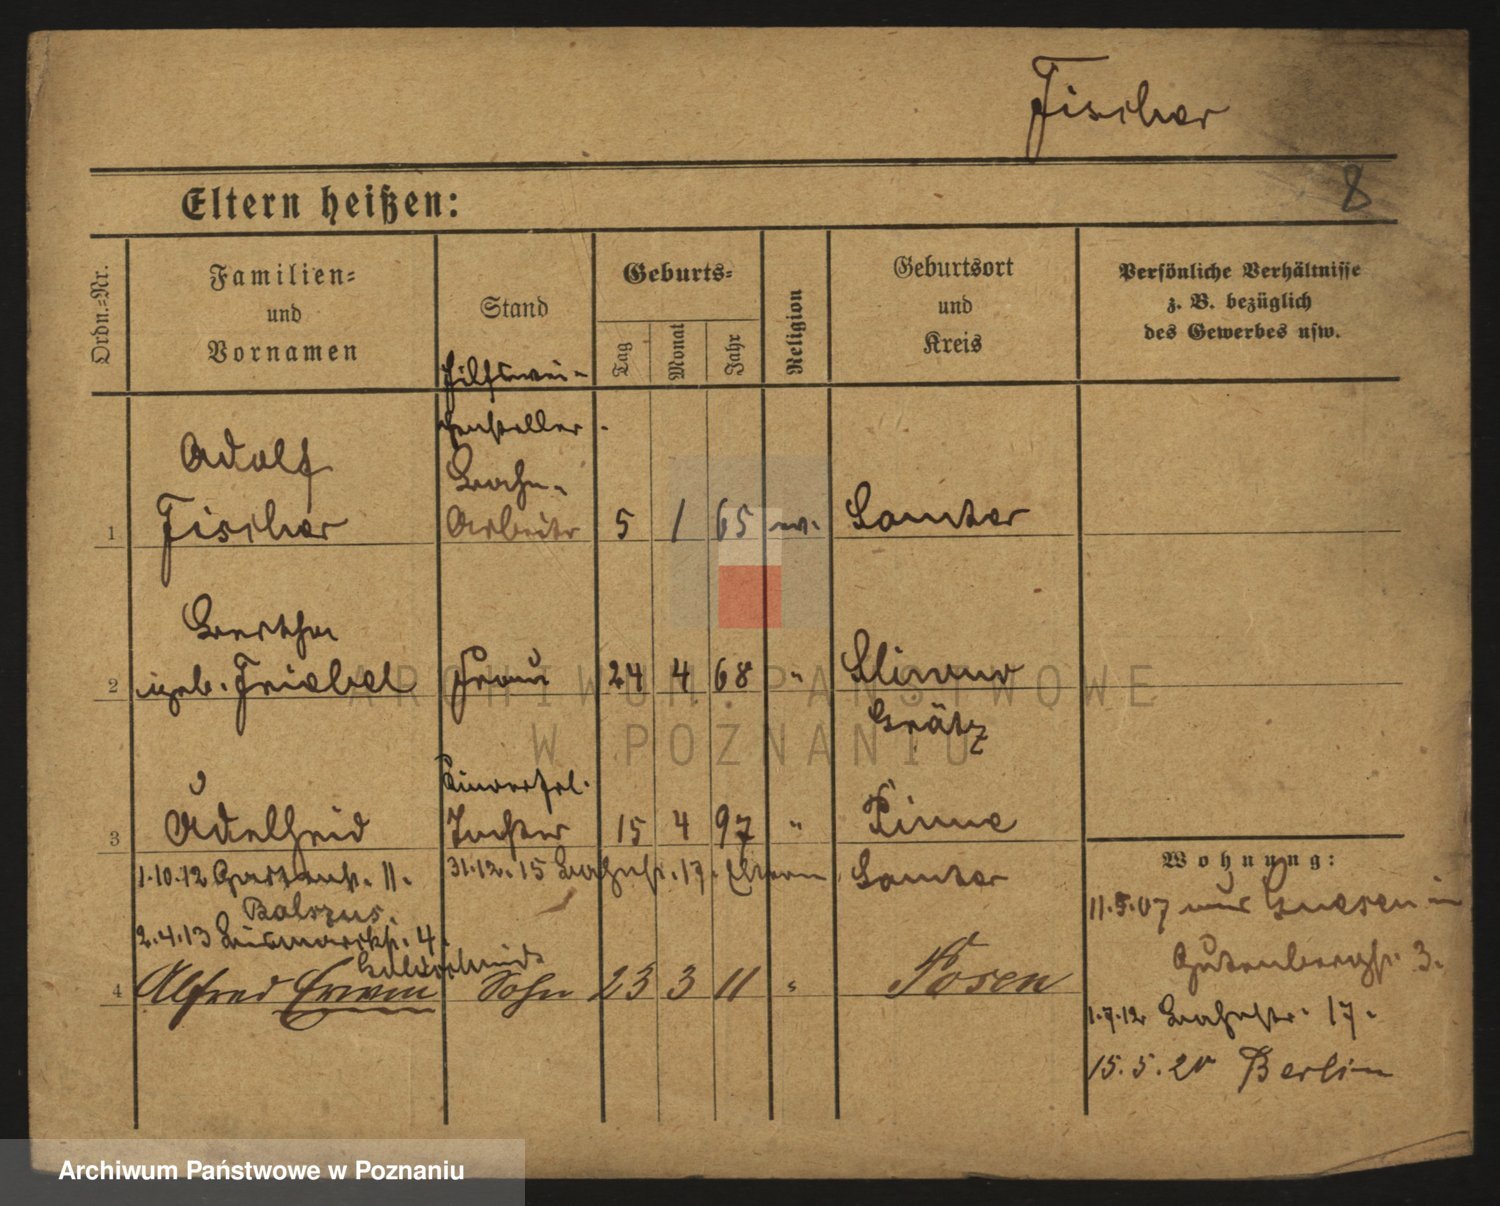 Fischer
8
Eltern heißen:
Ordn.=Nr.
Familien=
und
Vornamen
Stand
Geburts=
Tag
Monat
Jahr
Religion
Geburtsort
und
Kreis
Persönliche Verhältnisse
z. B. bezüglich
des Gewerbes usw.
Hilfswei-
chensteller
Adolf
Bahn-
1 Fischer Arbeiter 5 1 65 Samter
Bertha
2 geb. Friebel Frau 24 4 68 "
Grätz
3 Adelheid Tochter 15 4 97 " Pinne
1.10.12 Gartenstr. 11. 31.12.15 Bahnstr. 17. Eltern Samter
2.4.13 Bismarckstr. 4.
4 Alfred Erwin Sohn 23 3 11 " Posen
Wohnung:
11.5.07 aus Gnesen in
Gutenbergstr. 3.
1.7.12 Bahnstr. 17.
15.5.20 Berlin
ARCHIWUM PAŃSTWOWE
W POZNANIU
Archiwum Państwowe w Poznaniu